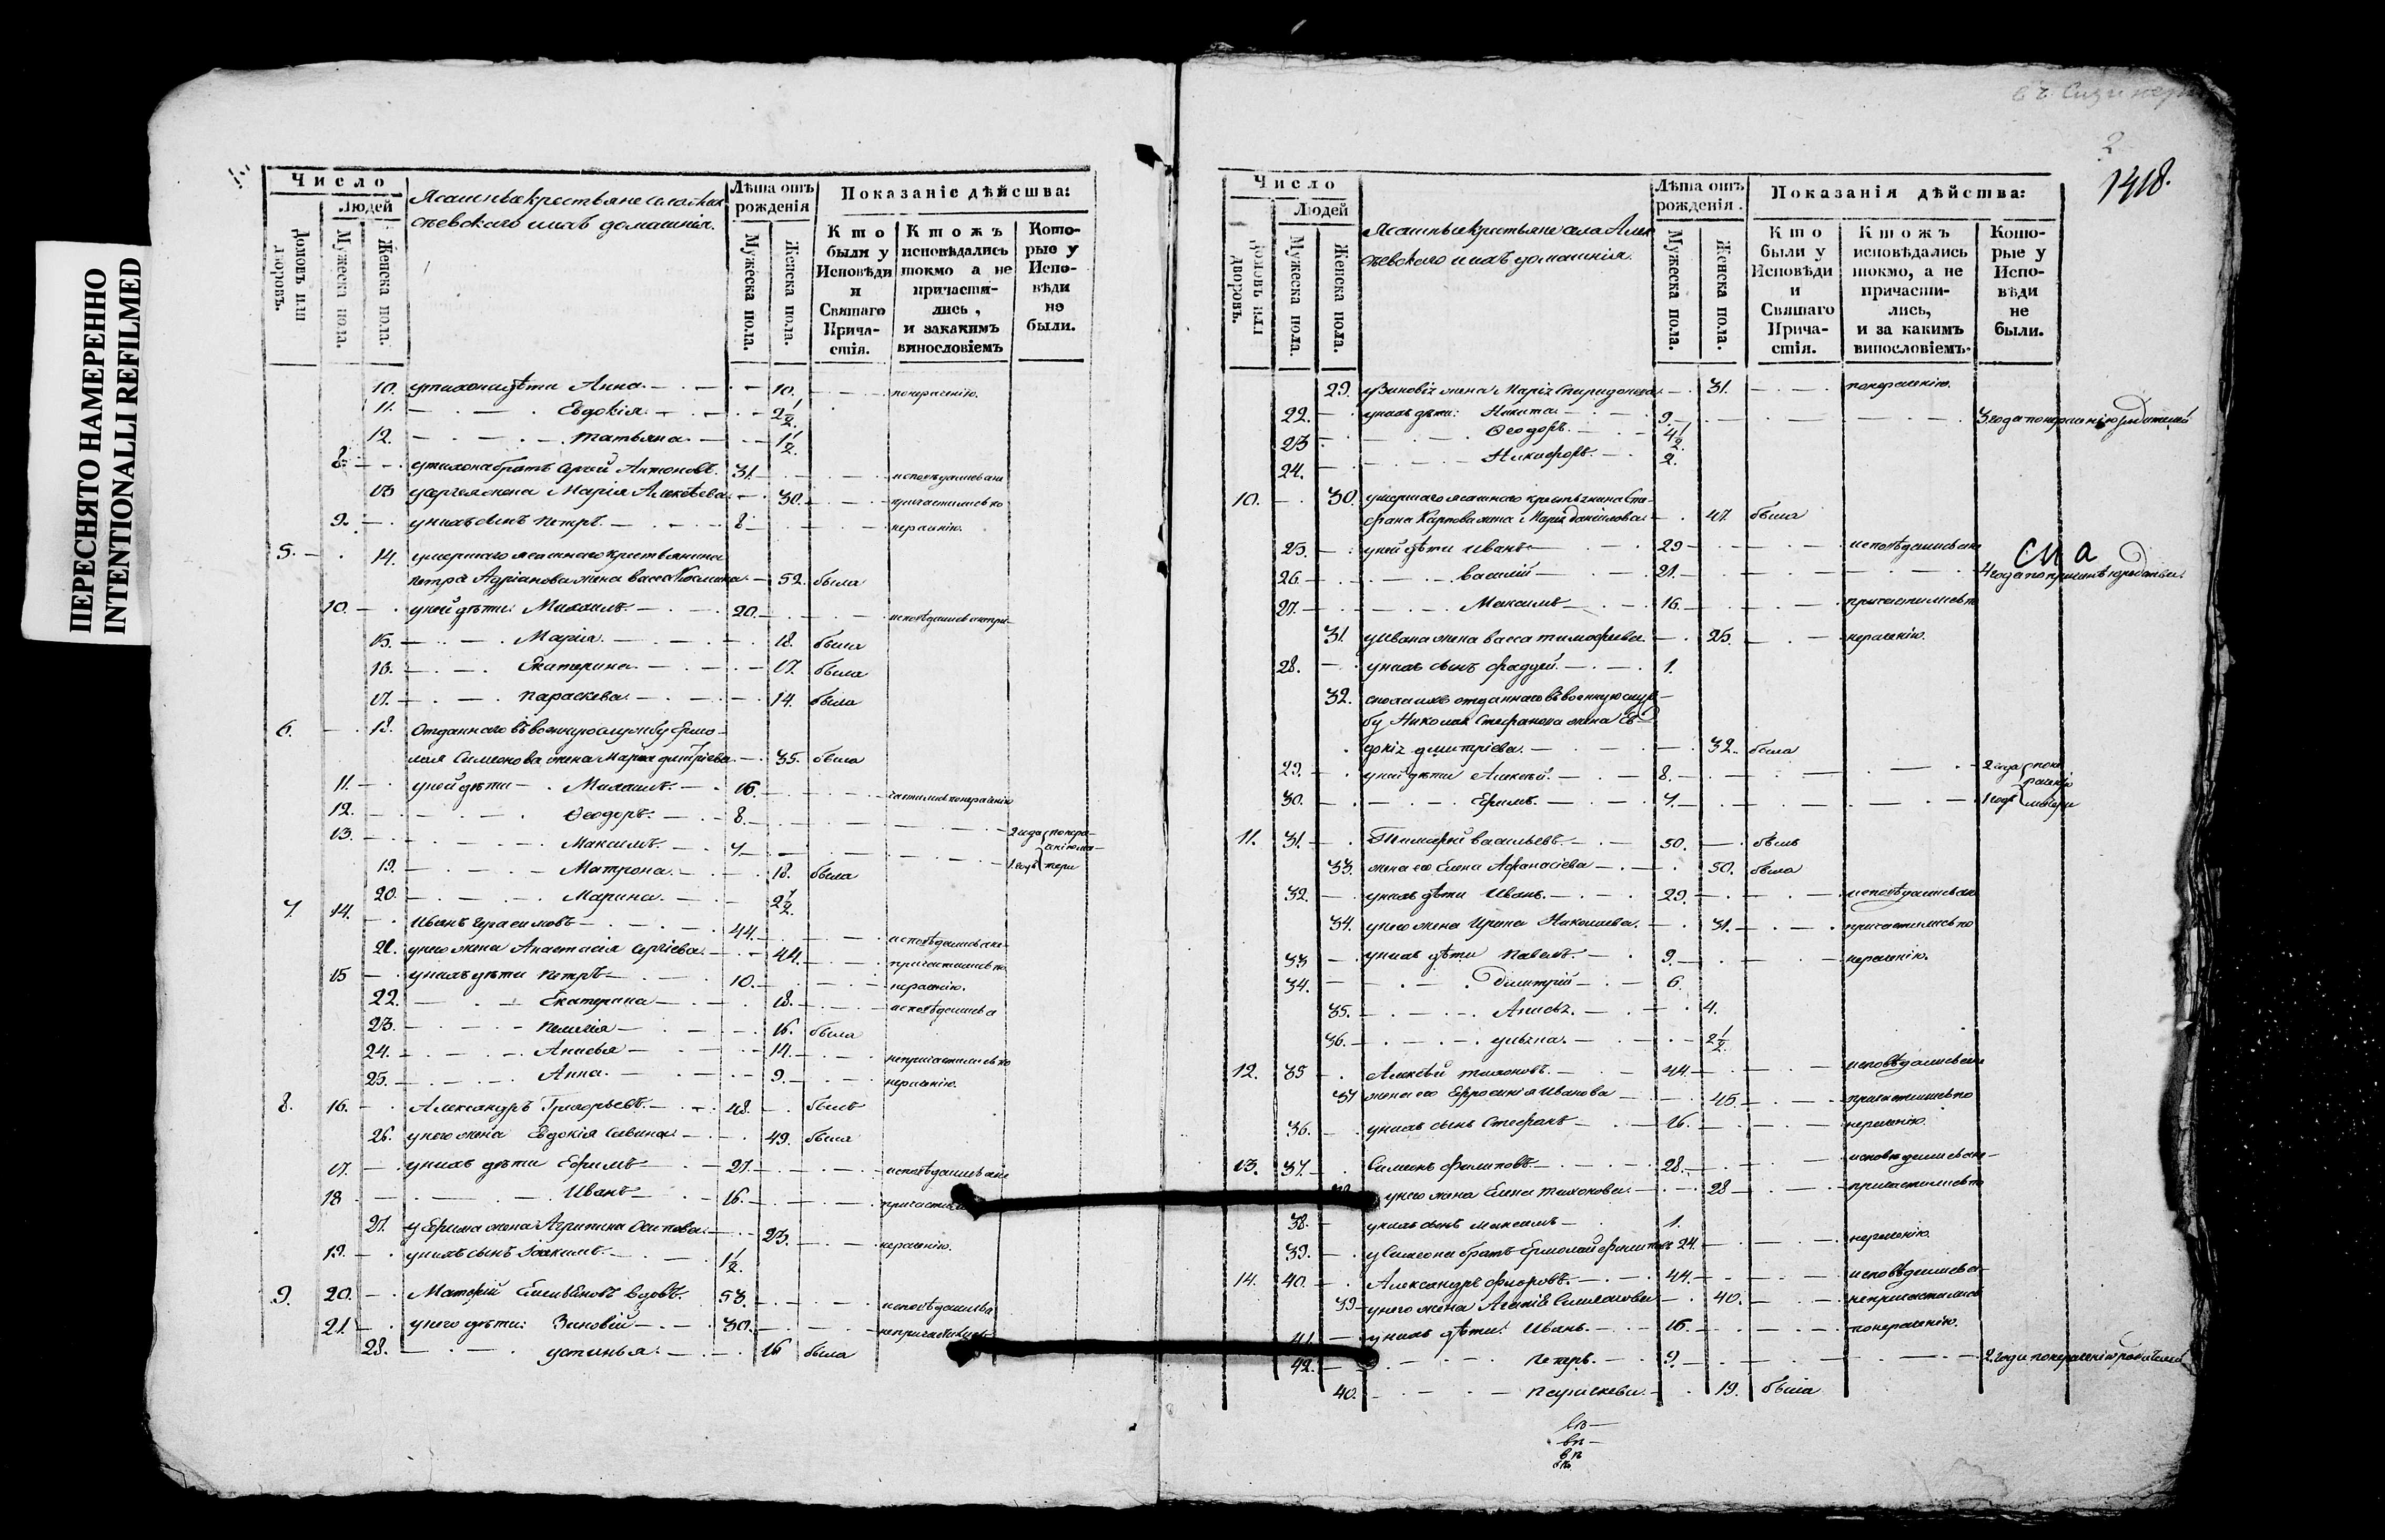 ПЕРЕСНЯТО НАМЕРЕННО
INTENTIONALLI REFILMED
Число
Людей
Домовъ или дворовъ.
Мужеска пола.
Женска пола.
Ясашные крестьяне села Алек
сѣевскаго и ихъ домашнія.
Лѣта отъ рожденія
Мужеска пола.
Женска пола.
Показаніе дѣйства:
Кто были у Исповѣди и Святаго Прича- стія.
Ктожъ исповѣдались токмо а не причасти- лись, и закакимъ винословіемъ
Кото- рые у Испо- вѣди не были.
10. у тихона дѣти Анна. 10. понераченію.
11. Евдокія. 2 1/2.
12. татьяна. 1 1/2.
8. у тихона братъ Сергей Антоновъ. 31. исповѣдались ане
13 у сергея жена Марія Алексѣева. 30. причастились по
9. у нихъ сынъ петръ. 8 нераченію.
5. 14. умершаго ясашнаго крестьянина
петра Адріанова жена васса 52. была
10. у ней дѣти: Михаилъ. 20.
15. Марія. 18. была
16. Екатерина. 17. была
17. параскева. 14. была
6. 18. Отданнаго въ военную службу Ермо-
лая Симеонова жена Марѳа дмитріева 35. была
11. у ней дѣти Михаилъ. 16. частились понераченію
12. Ѳеодоръ. 8. 2 года понера-
13. Максимъ. 7 ченію ма-
19. Матрона. 18. была 1. годъ тери
20. Марина. 2 1/2.
7. 14. Иванъ Герасимовъ 44. исповѣдались ане
21. у него жена Анастасія Сергіева. 44. причастились по
15 у нихъ дѣти петръ 10. нераченію.
22. Екатерина 18. исповѣдались а
23. пелагія 16. была
24. Анисья 14. непричастились по
25. Анна. 9. нераченію.
8. 16. Александръ Григорьевъ. 48. былъ
26. у него жена Евдокія Савина. 49. была
17. у нихъ дѣти Ефимъ 27. исповѣдались ане
18 Иванъ 16.
27. у Ефима жена Агрипина Осипова. 23. нераченію.
19. у нихъ сынъ Іоакимъ. 1 1/2.
9. 20. Матфей Емельяновъ вдовъ. 53. исповѣдались а
21. у него дѣти: Зиновій 30. непричастились
28. устинья. 16 была
2
1418.
Число
Людей
Домовъ или дворовъ.
Мужеска пола.
Женска пола.
Ясашные крестьяне села Алек
сѣевскаго и ихъ домашнія.
Лѣта отъ рожденія.
Мужеска пола.
Женска пола.
Показанія дѣйства:
Кто были у Исповѣди и Святаго Прича- стія.
Ктожъ исповѣдались токмо, а не причасти- лись, и за какимъ винословіемъ.
Кото- рые у Испо- вѣди не были.
29. у Зиновія жена Марія Спиридонова. 31. понераченію.
22. у нихъ дѣти: Никита. 9. 3 года понераченію родителей
23 Ѳеодоръ. 4 1/2
24. Никифоръ. 2.
10. 30. умершаго ясашнаго крестьянина Сте-
фана Карпова жена Марья даніилова 47. была
25. у ней дѣти иванъ 29 исповѣдались ане
26. василій 21.
27. Максимъ 16. причастились по
31. у Ивана жена васса тимофеева. 25. нераченію.
28. у нихъ сынъ фаддей. 1.
32. снохи ихъ отданнаго въ военную служ-
бу Николая Стефанова жена Ев-
докія дмитріева. 32. была
29. у ней дѣти Алексѣй. 8. 2 года поне
раченію
30. Ефимъ. 7. 1 годъ матери
11. 31. Тимофей васильевъ. 50. былъ
33. жена его Елена Афанасіева 50. была
32. у нихъ дѣти Иванъ. 29. исповѣдались ане
34. у него жена Ирина Николаева. 31. причастились по
33 у нихъ дѣти павелъ. 9. нераченію.
34. Димитрій 6.
35. Анисья. 4.
36. ульяна. 2 1/2.
12. 35 Алексѣй тихоновъ. 44. исповѣдались ане
37 жена его Ефросинія Иванова 45. причастились по
36. у нихъ сынъ Стефанъ 16. нераченію.
13. 37. Симеонъ филиповъ. 28. исповѣдались ане-
у него жена Елена тихонова. 28 причастились по
38. у нихъ сынъ максимъ 1.
39. у Симеона братъ Ермолай филиповъ 24. нераченію.
14. 40. Александръ флоровъ. 44. исповѣдались а-
39 у него жена Агафія 40. непричастились
41 у нихъ дѣти: Иванъ. 16. понераченію.
42. петръ. 9. 2. года понераченію родителей
40. параскева. 19. была